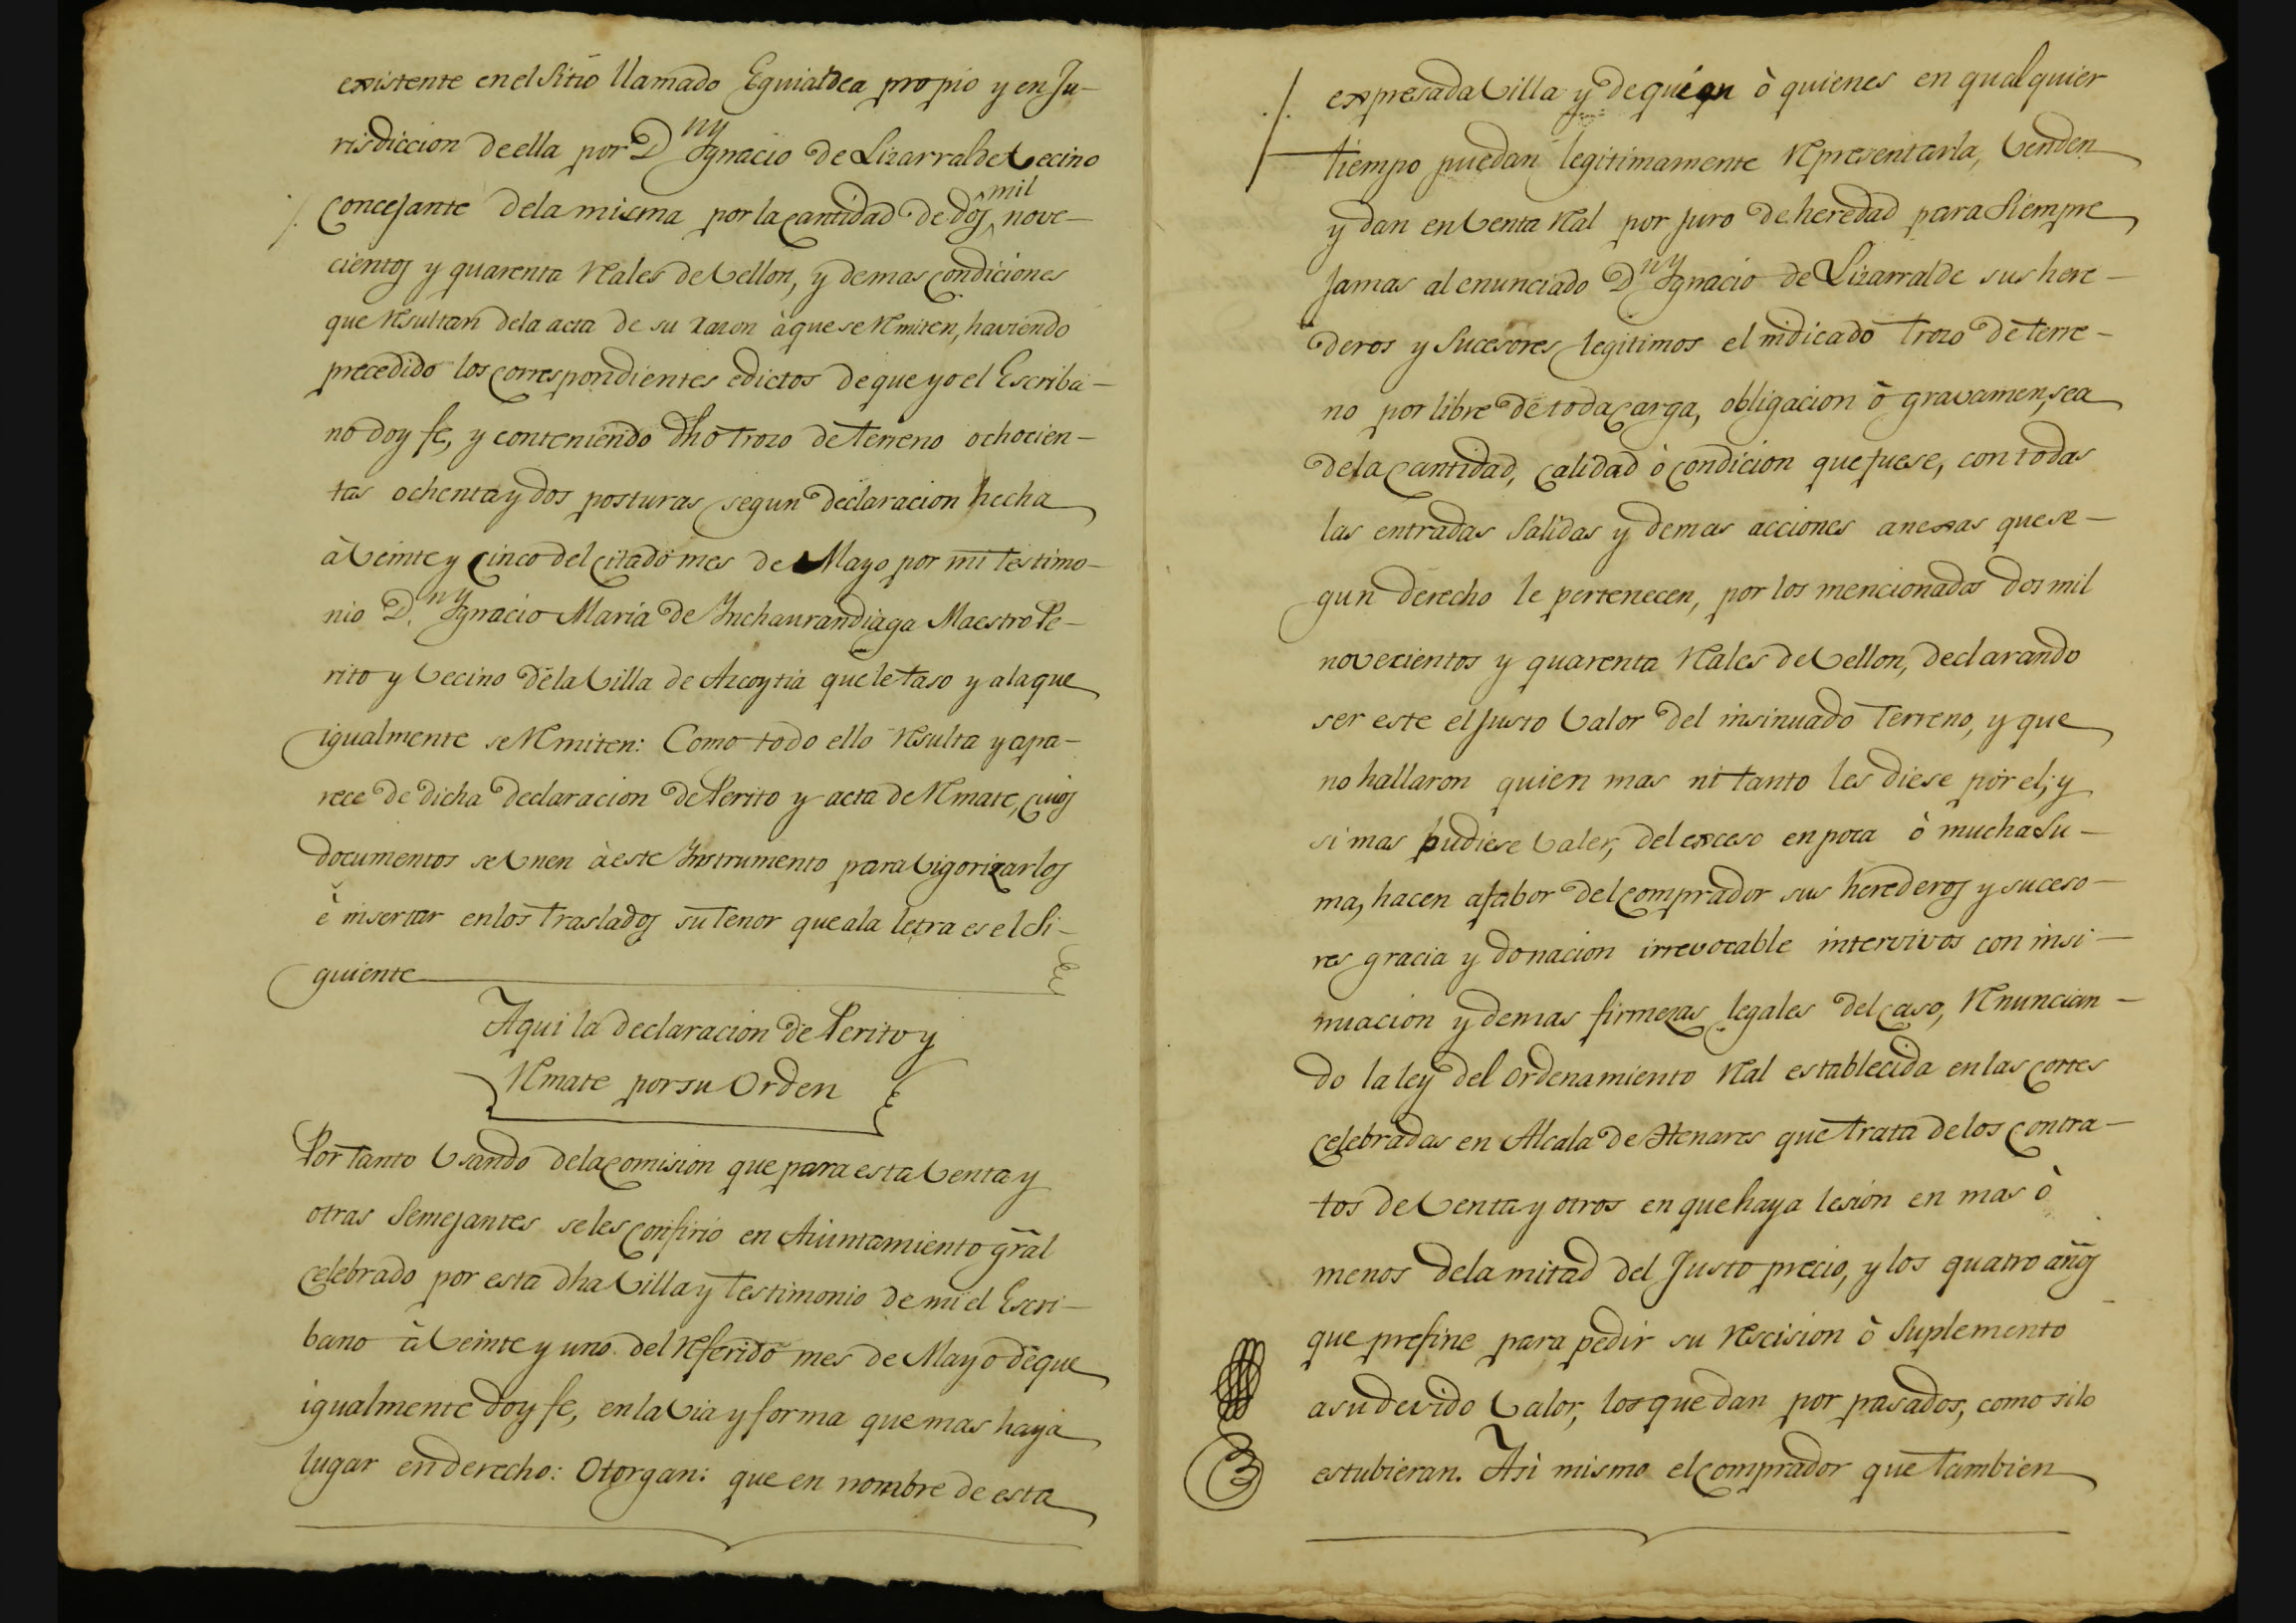 existente en el Sitio llamado Eguialdea propio y en Ju-
risdiccion de ella por Dn Ygnacio de Lizarralde Vecino
Concejante de la misma por la cantidad de dos mil nove-
cientos y quarenta Reales de Vellon, y demas condiciones
que Resultan de la acta de su razon à que se Remiten, haviendo
precedido los correspondientes edictos de que yo el Escriba-
no doy fe, y conteniendo dho trozo de terreno ochocien-
tas ochenta y dos posturas segun declaracion hecha
à Veinte y cinco del citado mes de Mayo por mi testimo-
nio Dn Ygnacio Maria de Ynchaurandiaga Maestro Pe-
rito y Vecino de la Villa de Azcoytia que le taso y a la que
igualmente se Remiten: Como todo ello Resulta y apa-
rece de dicha declaracion de Perito y acta de Remate, cuios
documentos se Vnen à este Ynstrumento para Vigorizarlos
è insertar en los traslados su tenor que a la letra es el Si-
guiente
Aqui la declaracion de Perito y
Remate por su Orden
Por tanto Vsando de la comision que para esta Venta y
otras Semejantes se les confirio en Aiuntamiento gral
celebrado por esta dha Villa y testimonio de mi el Escri-
bano à Veinte y uno del Referido mes de Mayo de que
igualmente doy fe, en la via y forma que mas haya
lugar en derecho: Otorgan: que en nombre de esta
expresada Villa y de quien ò quienes en qualquier
tiempo puedan legitimamente Representarla, Venden
y dan en Venta Real por juro de heredad para Siempre
Jamas al enunciado Dn Ygnacio de Lizarralde sus here-
deros y Sucesores legitimos el indicado trozo de terre-
no por libre de toda carga, obligacion ò gravamen, sea
de la cantidad, calidad ò condicion que fuese, con todas
las entradas Salidas y demas acciones anexas que se-
gun derecho le pertenecen, por los mencionados dos mil
novecientos y quarenta Reales de Vellon, declarando
ser este el Justo Valor del insinuado terreno, y que
no hallaron quien mas ni tanto les diese por el; y
si mas pudiese Valer, del exceso en poca ò mucha Su-
ma, hacen a fabor del comprador sus herederos y suceso-
res gracia y donacion irrevocable intervivos con insi-
nuacion y demas firmezas legales del caso, Renuncian-
do la ley del Ordenamiento Real establecida en las cortes
celebradas en Alcala de Henares que trata de los contra-
tos de Venta y otros en que haya lesion en mas ò
menos de la mitad del Justo precio, y los quatro años
que prefine para pedir su Rescision ò Suplemento
a su devido Valor, los que dan por pasados, como si lo
estubieran. Asi mismo el comprador que tambien